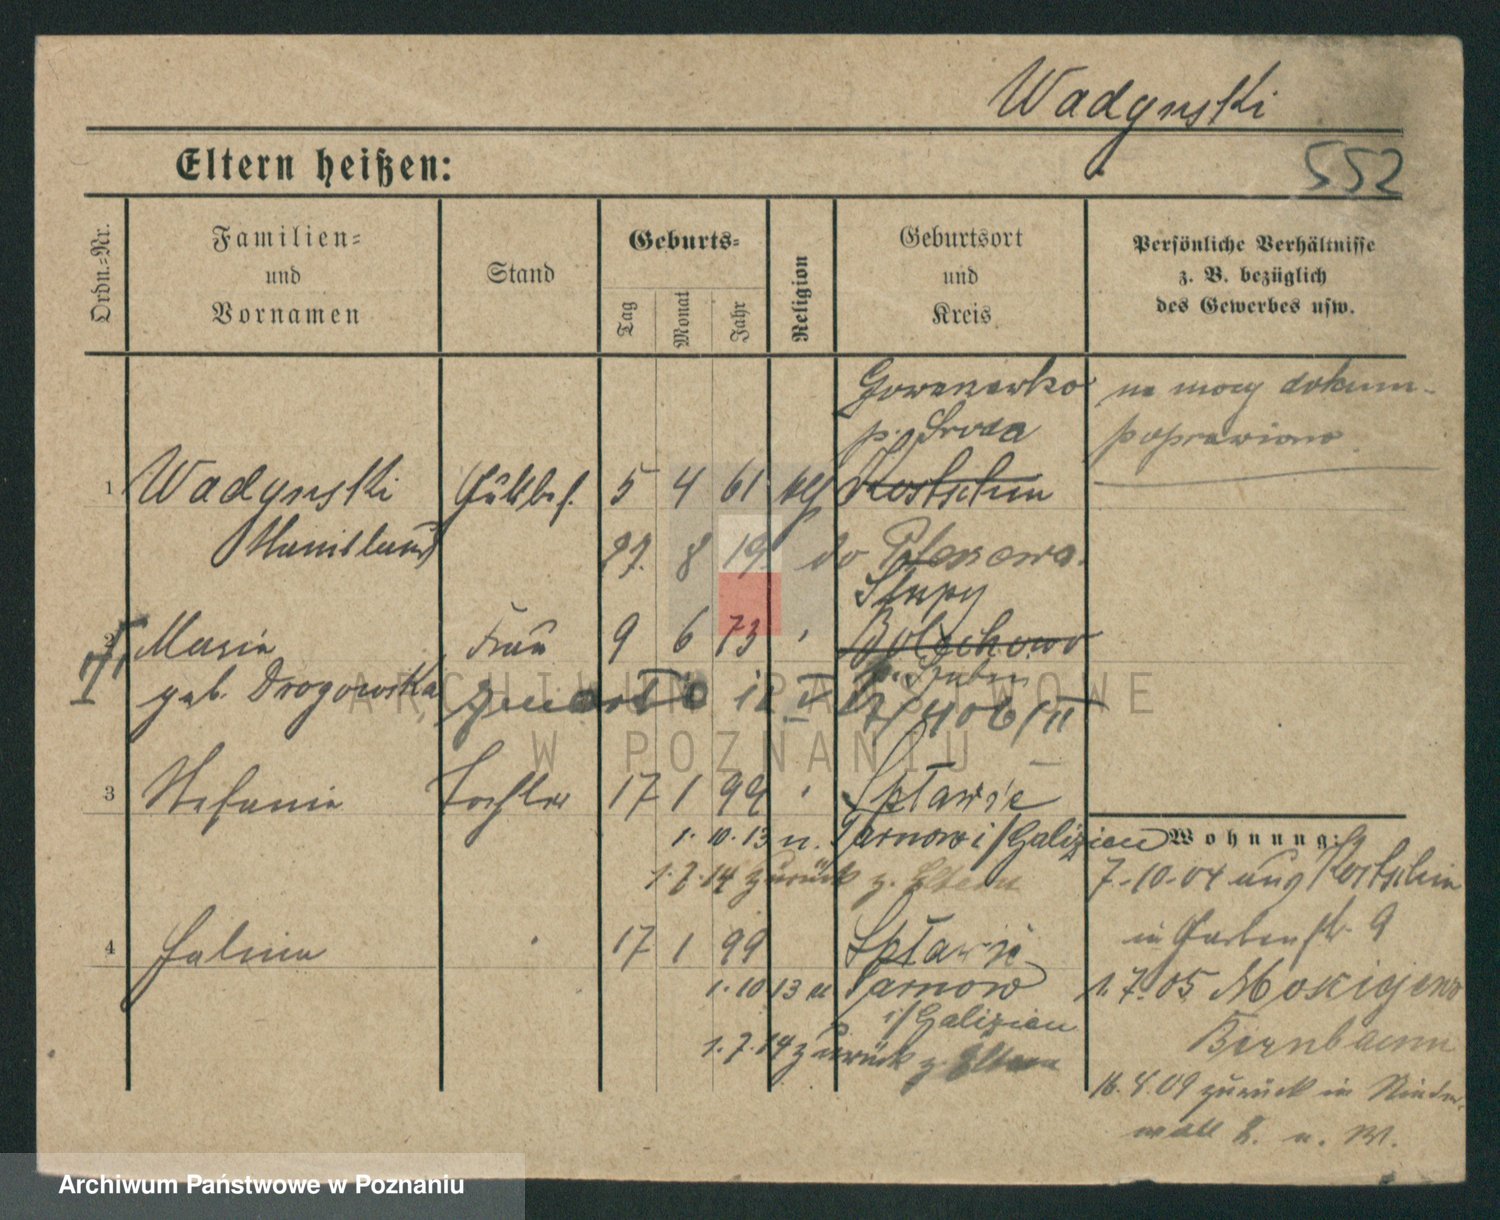 Wadynski
552
Eltern heißen:
Ordn.-Nr.
Familien-
und
Vornamen
Stand
Geburts-
Tag
Monat
Jahr
Religion
Geburtsort
und
Kreis
Persönliche Verhältnisse
z. B. bezüglich
des Gewerbes usw.
na mocy dokum-
p. Sroda
poprawiono
1 Wadynski 5 4 61 Kostschin
Stanislaus 8 19 do
Slupy
2 Maria Frau 9 6 73 Bolechowo
geb. Drogowska
3 Stefania Tochter 17 1 99 Spławie
1. 10. 13 n. Tarnow i/Galizien
Wohnung:
1. 7. 14 zurück z. Eltern
7.-10-04 Kostschin
4 Halina 17 1 99 Spławie
in Gartenstr. 9
1. 10 13 n Tarnow
1. 7. 05
i/Galizien
Birnbaum
1. 7. 14 zurück z. Eltern
16. 4. 09 zurück in Nieder-
wall
ARCHIWUM PAŃSTWOWE
W POZNANIU
Archiwum Państwowe w Poznaniu